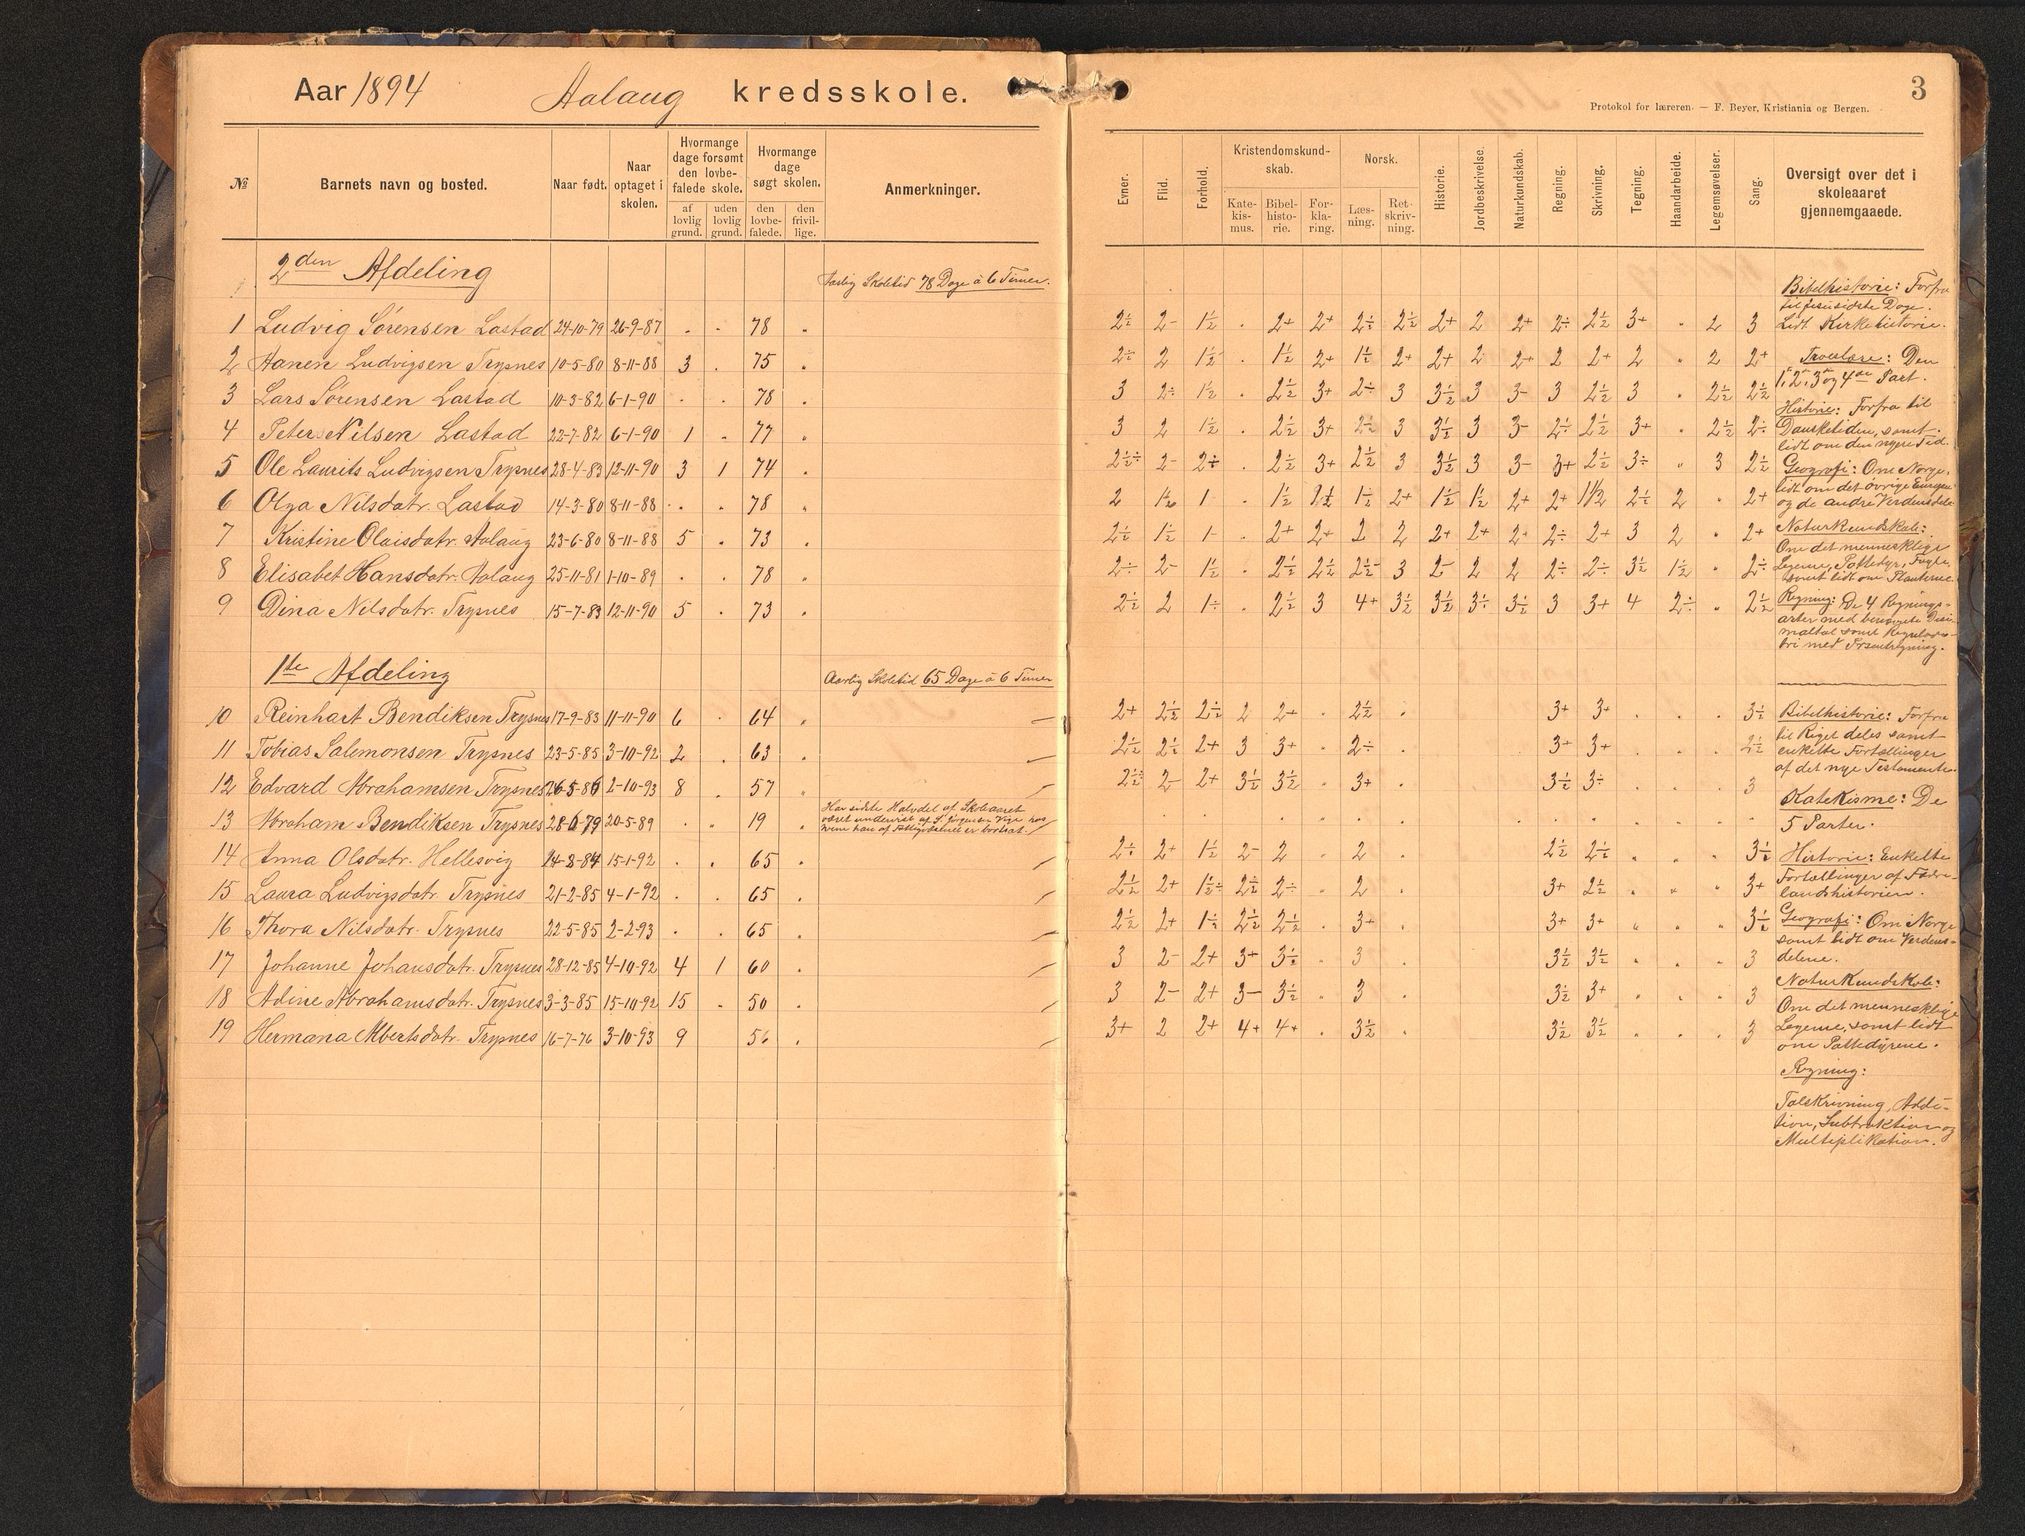 Aar 1894 Aalaug kredsskole.
№ Barnets navn og bosted. Naar født. Naar optaget i skolen. Hvormange dage forsømt den lovbefalede skole. af lovlig grund. uden lovlig grund. Hvormange dage søgt skolen. den lovbefalede. den frivillige. Anmerkninger.
2den Afdeling Aarlig Skoletid 78 Dage à 6 Timer.
1 Ludvig Sørensen Lastad 24-10-79 26-9-87 . . 78 .
2 Hanen Ludvigsen Trysnes 10-5-80 8-11-88 3 . 75 .
3 Lars Sørensen Lastad 10-3-82 6-1-90 . . 78 .
4 Peter Nilsen Lastad 22-7-82 6-1-90 1 . 77 .
5 Ole Laurits Ludvigsen Trysnes 28-4-83 12-11-90 3 1 74 .
6 Olga Nilsdatr. Lastad 14-3-80 8-11-88 . . 78 .
7 Kristine Olaisdatr. Aalaug 23-6-80 8-11-88 5 . 73 .
8 Elisabet Hansdatr. Aalaug 25-11-81 1-10-89 . . 78 .
9 Dina Nilsdatr. Trysnes 15-7-83 12-11-90 5 . 73 .
1ste Afdeling Aarlig Skoletid 65 Dage à 6 Timer
10 Reinhart Bendiksen Trysnes 17-9-83 11-11-90 6 . 64 .
11 Tobias Salemonsen Trysnes 23-5-85 3-10-92 2 . 63 .
12 Edvard Abrahamsen Trysnes 26-5-86 2-10-93 8 . 57 .
13 Abraham Bendiksen Trysnes 28-6-79 20-5-89 . . 19 . Har sidste Halvdel af Skoleaaret været undervist af S. Jørgensen Vige hos hvem han af Fattigvæsenet er bortsat.
14 Anna Olsdatr. Hellesvig 14-3-84 15-1-92 . . 65 .
15 Laura Ludvigsdatr. Trysnes 21-2-85 4-1-92 . . 65 .
16 Thora Nilsdatr. Trysnes 22-5-85 2-2-93 . . 65 .
17 Johanne Johansdatr. Trysnes 28-12-85 4-10-92 4 1 60 .
18 Adine Abrahamsdatr. Trysnes 3-3-85 15-10-92 15 . 50 .
19 Hermana Albertsdatr. Trysnes 16-7-76 3-10-93 9 56 .
3
Protokol for læreren. — F. Beyer, Kristiania og Bergen.
Evner. Flid. Forhold. Kristendomskundskab. Katekismus. Bibelhistorie. Forklaring. Norsk. Læsning. Retskrivning. Historie. Jordbeskrivelse. Naturkundskab. Regning. Skrivning. Tegning. Haandarbeide. Legemsøvelser. Sang. Oversigt over det i skoleaaret gjennemgaaede.
2½ 2- 1½ . 2+ 2+ 2½ 2½ 2+ 2 2+ 2÷ 2½ 3+ . 2 3
2÷ 2 1½ . 1½ 2+ 1½ 2+ 2+ 2 2+ 2 2+ 2 . 2 2+
3 2÷ 1½ . 2½ 3+ 2÷ 3 3½ 3 3- 3 2½ 3 . 2½ 2½
3 2 1½ . 2½ 3+ 2½ 3 3½ 3 3- 2÷ 2½ 3+ . 2½ 2÷
2½÷ 2- 2÷ . 2½ 3+ 2½ 3 3½ 3 3- 3+ 2½ 3÷ " 3 2½
2 1½ 1 . 1½ 1½ 1½ 2+ 1½ 1½ 2+ 2+ 1½ 2½ 2 . 2+
2½ 1½ 1- . 2+ 2+ 2 2 2+ 2+ 2+ 2÷ 2+ 3 2 . 2+
2÷ 2- 1½ . 2½ 2½ 2½- 3 2- 2 2 2÷ 2÷ 3½ 1½ . 2÷
2½ 2 1÷ . 2½ 3 4+ 3½ 3½ 3½ 3½ 3 3+ 4 2÷ . 2½
2+ 2½ 2½ 2 2+ . 2½ . 3+ 3+ . . . 3½
2½ 2½ 2+ 3 3+ . 2÷ . 3+ 3+ . . . 2½
2½÷ 2- 2+ 3½ 3½ 3+ . 3½ 3÷ 3
2÷ 2+ 1½ 2- 2 . 2 . 2½ 2½ . . . 3½
2½ 2+ 1½÷ 2½ 2÷ . 2 . 3+ 2½ . . . 3+
2½ 2+ 1÷ 2½ 2½ . 3+ . 3+ 3+ . . . 3½
3 2- 2+ 3+ 3½ . 3 . 3½ 3½ . . . 3
3 2- 2+ 3- 3½ . 3 . 3½ 3+ . . . 3
3+ 2 2+ 4+ 4+ . 3½ . 3½ 3½ . . . 3
Bibelhistorie: Forfra
til Jesu sidste Dage.
Lidt Kirkehistorie.
Troeslære: Den
1, 2, 3 og 4de Part.
Historie: Forfra til
Dansketiden, samt
lidt om den nyere Tid.
Geografi: Om Norge,
lidt om det øvrige Europa
og de andre Verdensdele
Naturkundskab:
Om det mennesklige
Legeme, Pattedyr, Fugle,
samt lidt om Planterne
Regning: De 4 Regnings-
arter med benævnte Desi-
maltal samt Reguladetri med Prosentregning.
Bibelhistorie: Forfra
til Riget deles samt
enkelte Fortællinger
af det nye Testamente.
Katekisme: De
5 Parter.
Historie: Enkelte
Fortællinger af Fædre-
landshistorien.
Geografi: Om Norge
samt lidt om Verdens-
delene.
Naturkundskab:
Om det menneskelige
Legeme, samt lidt
om Pattedyrene.
Regning:
Talskrivning, Addi-
tion, Subtraktion og
Multiplikation.